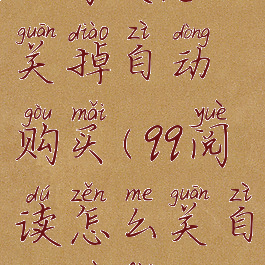 guān diào zì dòng
关掉自动
gòu mǎi yuè
购买(99阅
dú zěn me guān zì
读怎么关自